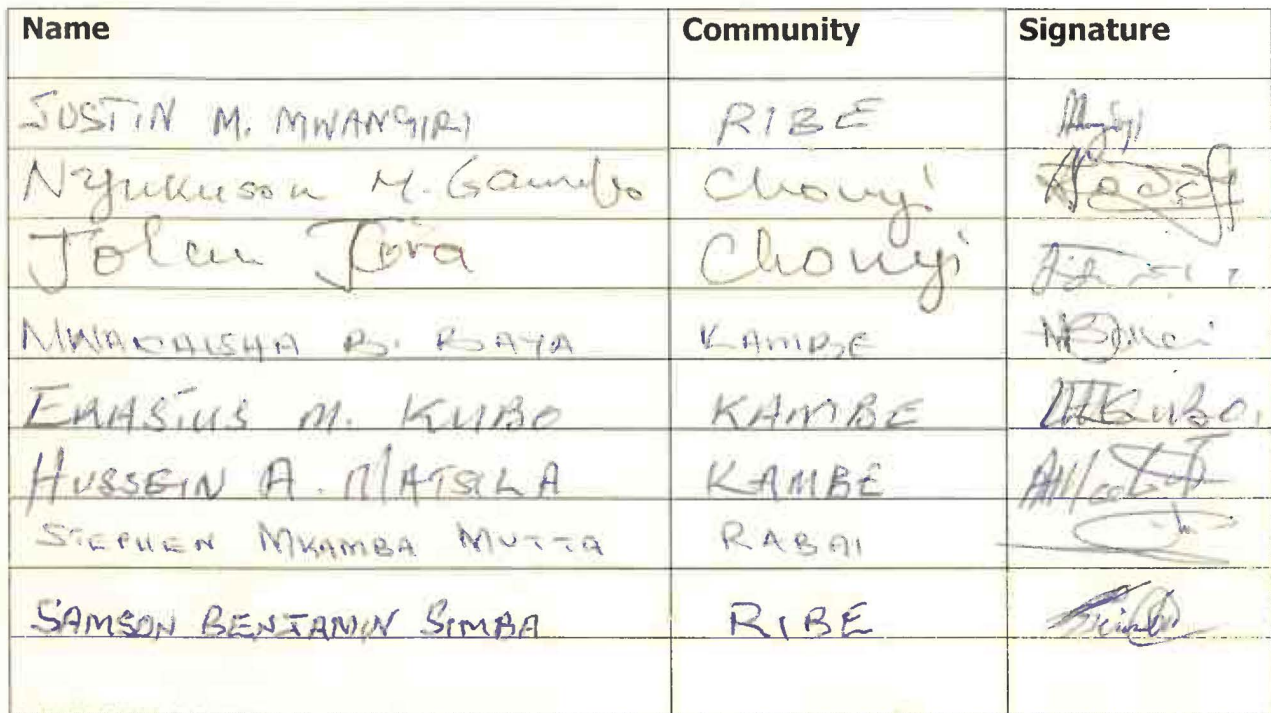 Name Community Signature
JUSTIN M. MWANGIRI RIBE
Nyukuson M. Gambo Chonyi
Chonyi
B. BAYA KAMBE
ERASIUS M. KUBO KAMBE
HUSSEIN A. MATSILA KAMBE
STEPHEN MKAMBA MUTTA RABAI
SAMSON BENJAMIN SIMBA RIBE